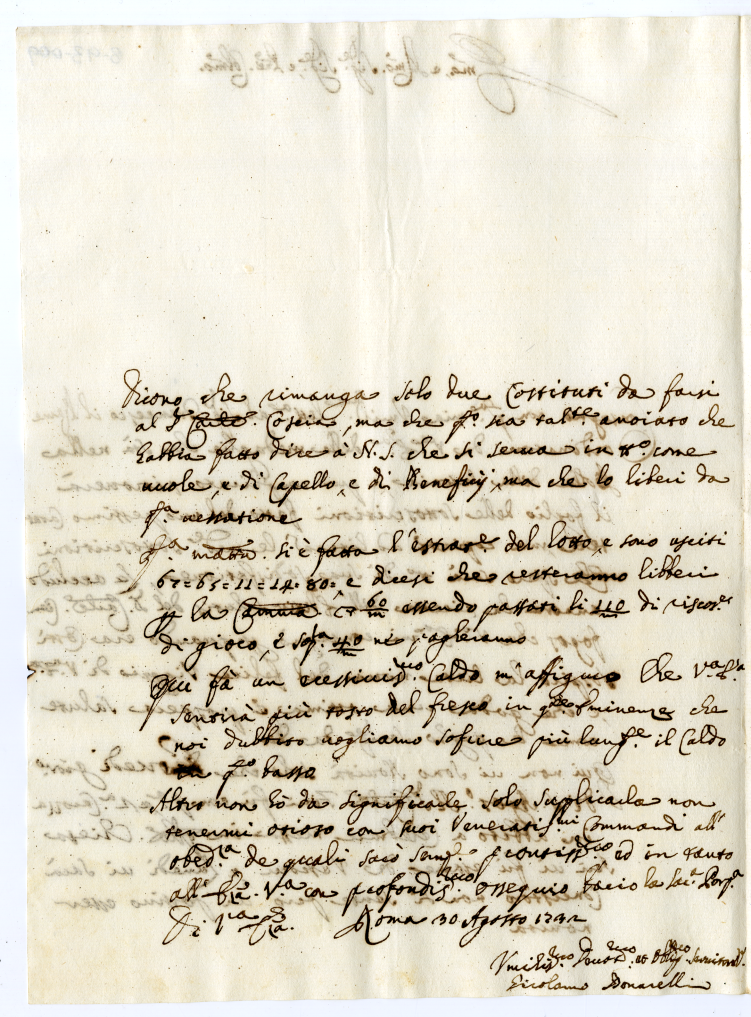 Dicono che rimanga solo due Costituti da farsi
al Sr. Carde. Coscia, ma che qo. sia talte. anoiato che
habbia fatto dire à N. S. che si serva in tto. come
uuole, e di Capello, e di Beneficij, ma che lo liberi da
qa. uessatione
qa. mattna. si è fatta l'estrae. del lotto, e sono usciti
65=11=14=80= e dicesi che resteranno libberi
la 60/m essendo passati li 110/m di riscose.
di gioco, e sopa. 40/m ne pagheranno
Quì fà un eccessiuismo. Caldo m'affiguro che Va. Ea.
sentirà più tosto del fresco in qte. Eminenze che
noi dubbito uogliamo sofrire più lungte. il Caldo
qo. basso
Altro non hò da significarle solo suplicarla non
tenermi otioso con suoi Veneratismi. Commandi all'
obeda. de quali sarò sempe. prontissmo. ed in tanto
all' Ea. Va. con profondismo. ossequio bacio la Saa. Porpa.
Di Va. Ea. Roma 30 Agosto 1732
Umilismo. Deuotmo. et Obligmo. Seruitore
Girolamo Bonarelli